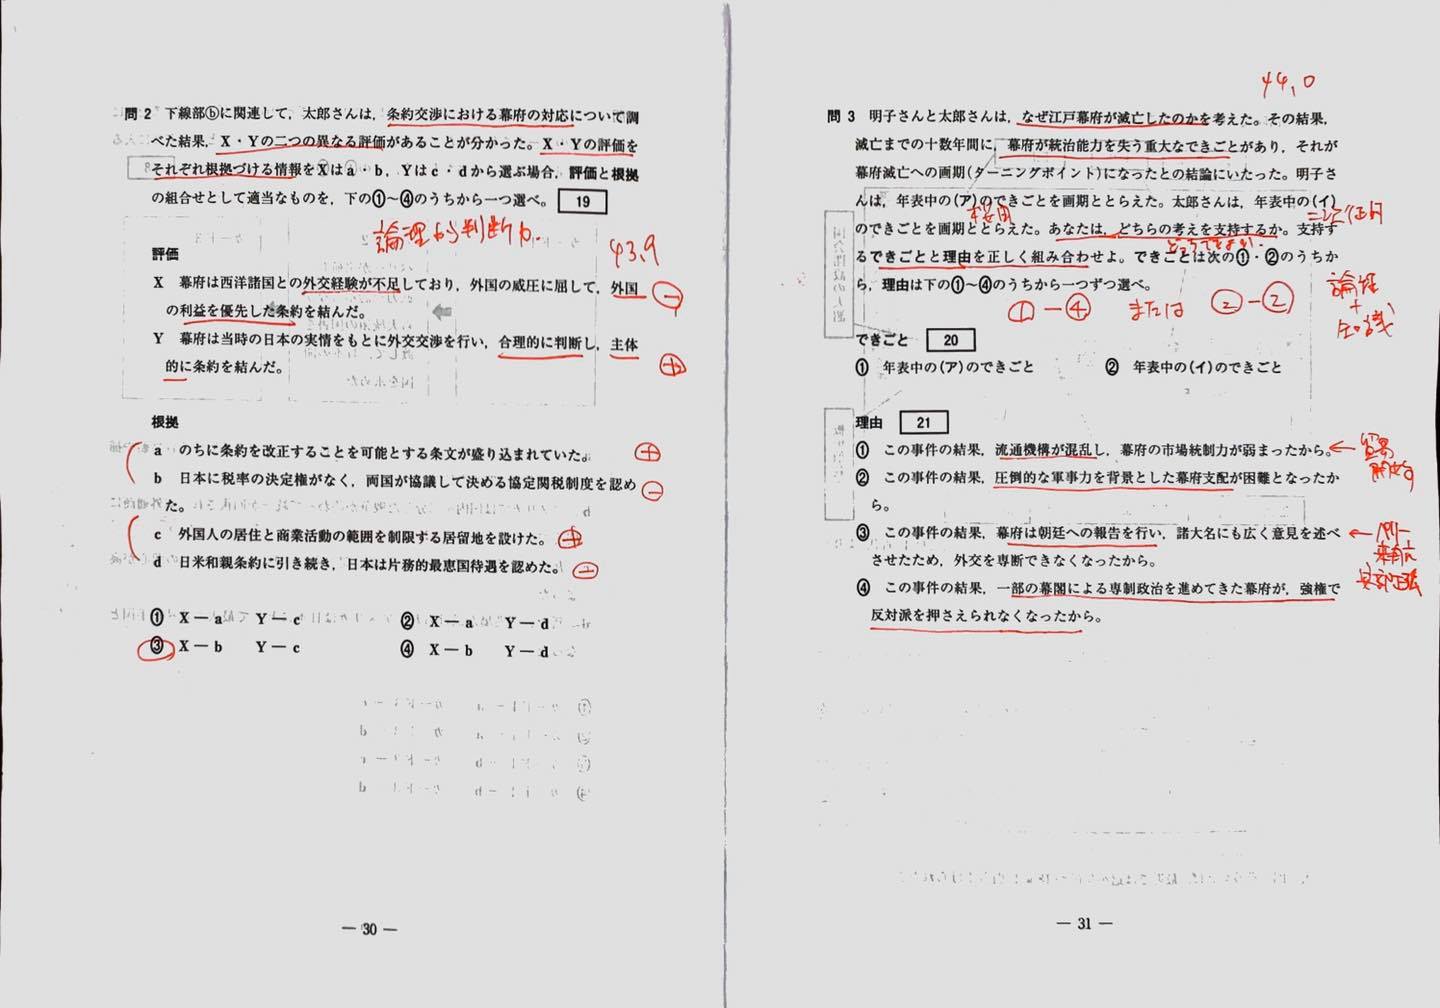 問2 下線部ⓑに関連して，太郎さんは，条約交渉における幕府の対応について調
べた結果，X・Yの二つの異なる評価があることが分かった。X・Yの評価を
それぞれ根拠づける情報をXはa・b，Yはc・dから選ぶ場合，評価と根拠
の組合せとして適当なものを，下の①～④のうちから一つ選べ。 19
論理から判断力．
43,9
評価
X 幕府は西洋諸国との外交経験が不足しており，外国の威圧に屈して，外国
の利益を優先した条約を結んだ。 ㊀
Y 幕府は当時の日本の実情をもとに外交交渉を行い，合理的に判断し，主体
的に条約を結んだ。 ⊕
根拠
a のちに条約を改正することを可能とする条文が盛り込まれていた。 ⊕
b 日本に税率の決定権がなく，両国が協議して決める協定関税制度を認め
た。 ⊖
c 外国人の居住と商業活動の範囲を制限する居留地を設けた。 ⊕
d 日米和親条約に引き続き，日本は片務的最恵国待遇を認めた。 ⊖
① X－a Y－c ② X－a Y－d
③ X－b Y－c ④ X－b Y－d
— 30 —
44,0
問3 明子さんと太郎さんは，なぜ江戸幕府が滅亡したのかを考えた。その結果，
滅亡までの十数年間に，幕府が統治能力を失う重大なできごとがあり，それが
幕府滅亡への画期(ターニングポイント)になったとの結論にいたった。明子さ
んは，年表中の(ア)のできごとを画期ととらえた。太郎さんは，年表中の(イ)
のできごとを画期ととらえた。あなたは，どちらの考えを支持するか。支持す
どっちでもよい．
るできごとと理由を正しく組み合わせよ。できごとは次の①・②のうちか
ら，理由は下の①～④のうちから一つずつ選べ。
①－④ または ②－②
論理
+
知識
できごと 20
① 年表中の(ア)のできごと ② 年表中の(イ)のできごと
理由 21
① この事件の結果，流通機構が混乱し，幕府の市場統制力が弱まったから。 ← 貿易
開始
② この事件の結果，圧倒的な軍事力を背景とした幕府支配が困難となったか
ら。
③ この事件の結果，幕府は朝廷への報告を行い，諸大名にも広く意見を述べ ← ペリー
させたため，外交を専断できなくなったから。 来航
阿部正弘
④ この事件の結果，一部の幕閣による専制政治を進めてきた幕府が，強権で
反対派を押さえられなくなったから。
— 31 —